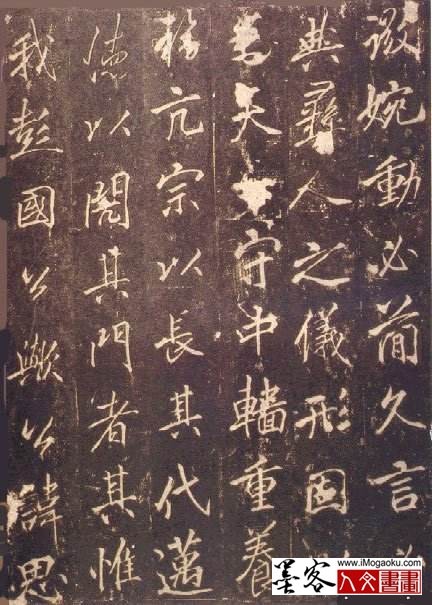 婉動必簡久言
典彝人之儀形國
天守中重養
亢宗以長其代邁
德以其門者其惟
我彭國公歟公諱思
墨客
www.iMogaoku.com
人文書畫